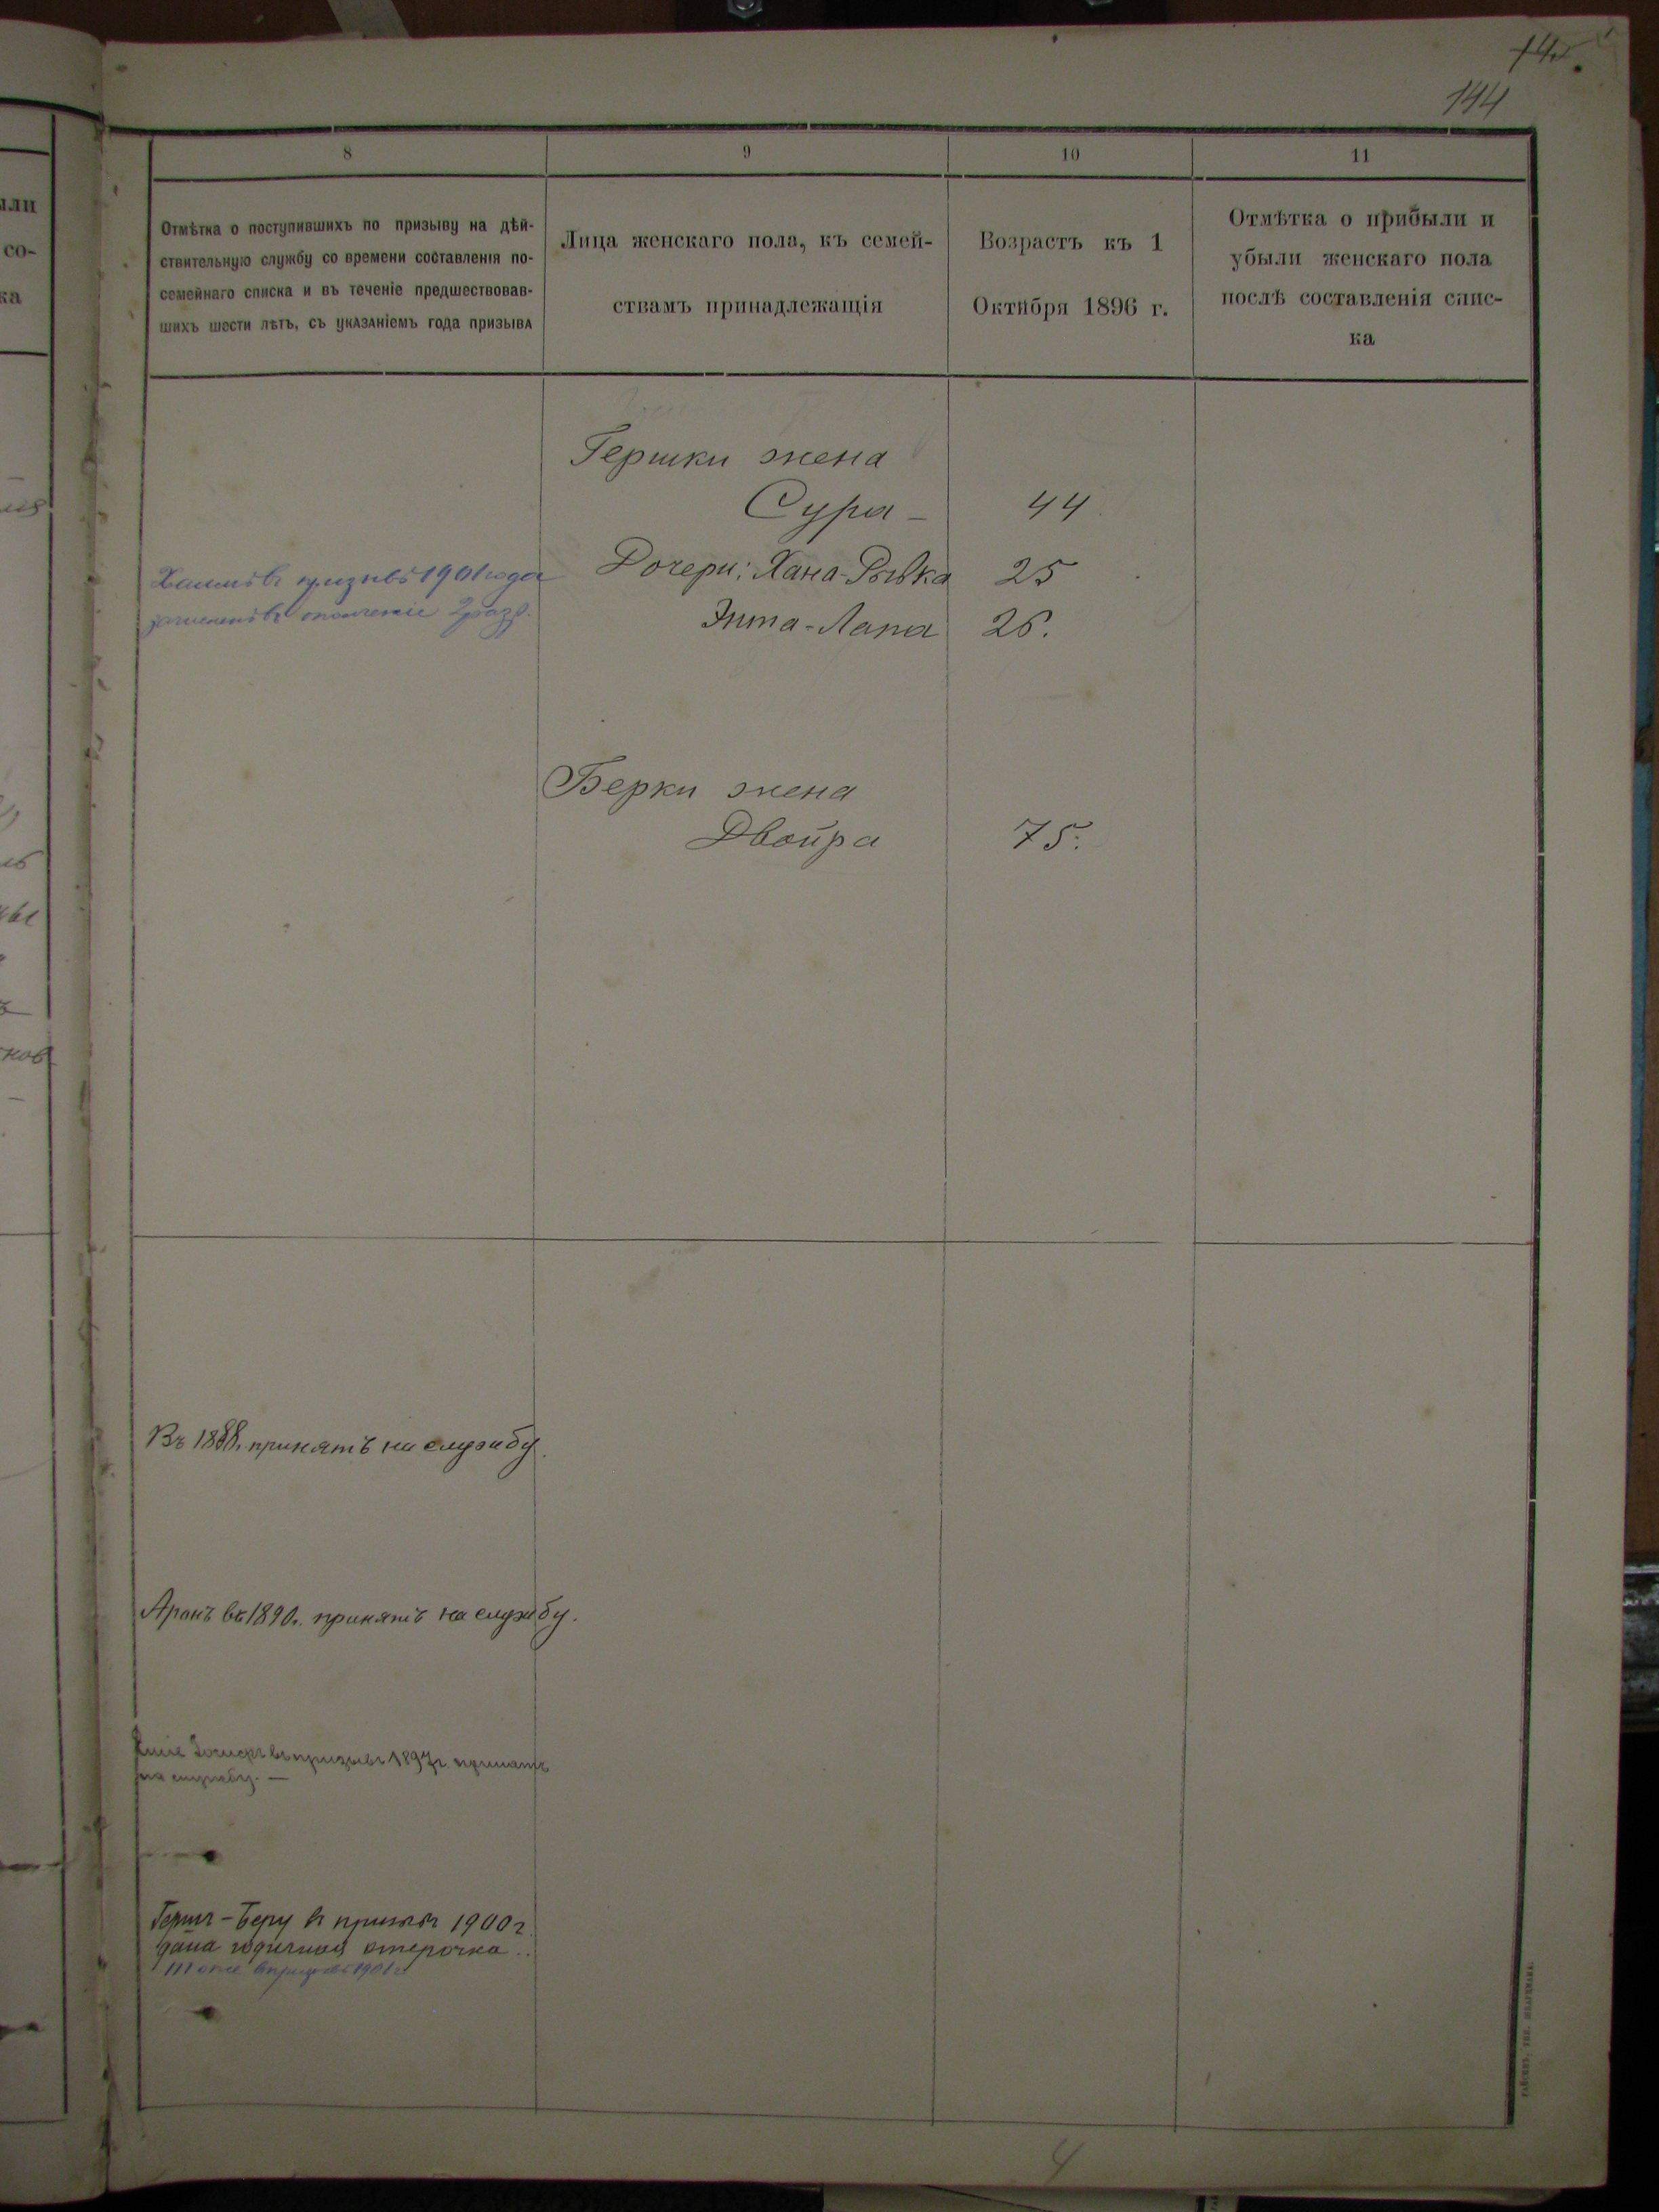 144
8
9
10
11
Отмѣтка о поступившихъ по призыву на дѣй-
ствительную службу со времени составленія по-
семейнаго списка и въ теченіе предшествовав-
шихъ шести лѣтъ, съ указаніемъ года призыва
Лица женскаго пола, къ семей-
ствамъ принадлежащія
Возрастъ къ 1
Октября 1896 г.
Отмѣтка о прибыли и
убыли женскаго пола
послѣ составленія спис-
ка
Гершки жена
Сура - 44
Дочери: Хана-Рывка 25
Энта-Лапа 26.
призывѣ 1901 года
ополченіе 2 разр.
Берки жена
Двойра 75.
Въ 1888. принятъ на службу.
Аронъ въ 1890. принятъ на службу.
въ призывѣ 1897 г. принятъ
на службу. —
Гершъ-Беру въ призывѣ 1900 г.
дана годичная отсрочка..
въ призывѣ 1901 г.
4